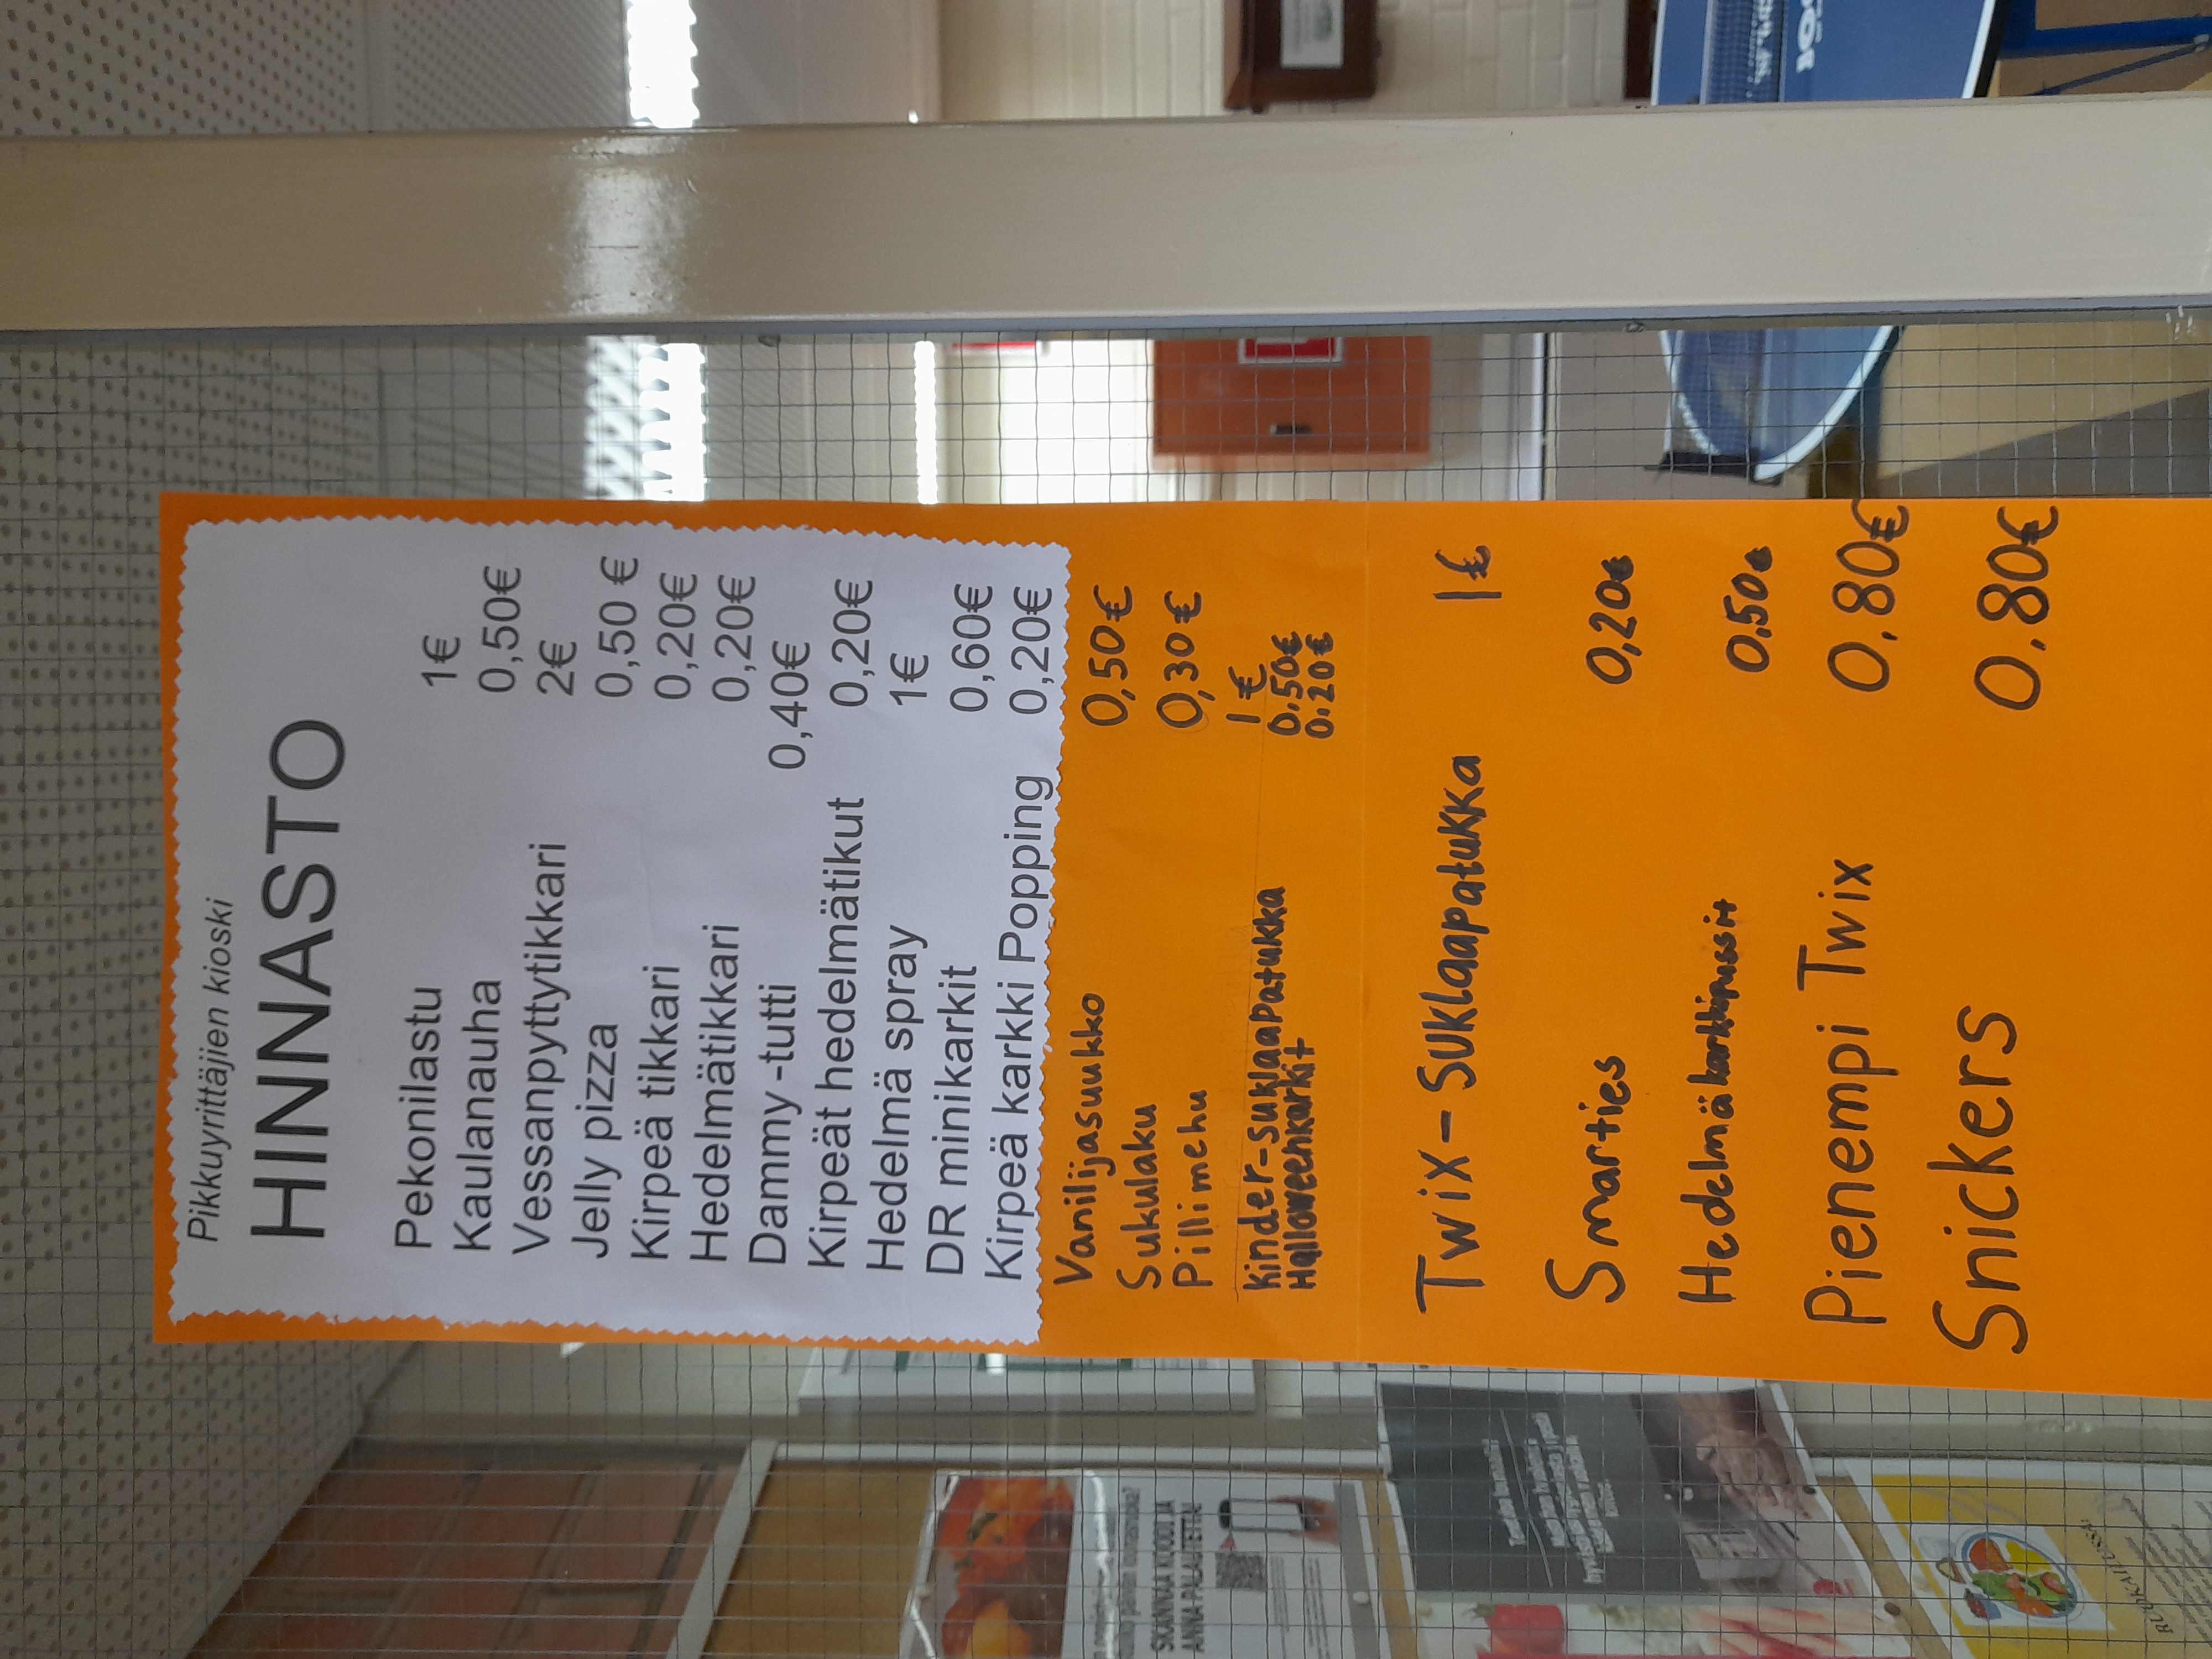 Pikkuyrittäjien kioski
HINNASTO
Pekonilastu 1€
Kaulanauha 0,50€
Vessanpyttytikkari 2€
Jelly pizza 0,50 €
Kirpeä tikkari 0,20€
Hedelmätikkari 0,20€
Dammy -tutti 0,40€
Kirpeät hedelmätikut 0,20€
Hedelmä spray 1€
DR minikarkit 0,60€
Kirpeä karkki Popping 0,20€
Vanilijasuukko 0,50€
Sukulaku 0,30€
Pillimehu 1€
Kinder-suklaapatukka 0.50€
Halloweenkarkit 0.20€
Twix-suklaapatukka 1€
Smarties 0,20€
Hedelmäkarkkipussit 0.50€
Pienempi Twix 0.80€
Snickers 0.80€
SKANNAA KOODI JA
ANNA PALAUTETTA!